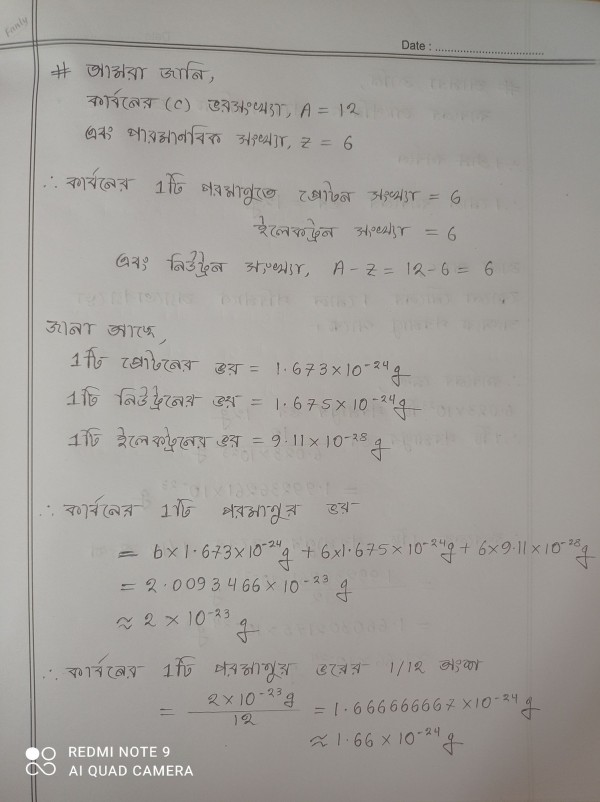 Date :
# আমরা জানি,
কার্বনের (C) ভরসংখ্যা, A = 12
এবং পারমানবিক সংখ্যা, Z = 6
∴ কার্বনের 1টি পরমাণুতে প্রোটন সংখ্যা = 6
ইলেকট্রন সংখ্যা = 6
এবং নিউট্রন সংখ্যা, A - Z = 12 - 6 = 6
জানা আছে,
1টি প্রোটনের ভর = 1.673×10⁻²⁴g
1টি নিউট্রনের ভর = 1.675×10⁻²⁴g
1টি ইলেকট্রনের ভর = 9.11×10⁻²⁸ g
∴ কার্বনের 1টি পরমাণুর ভর
= 6×1.673×10⁻²⁴g + 6×1.675×10⁻²⁴g + 6×9.11×10⁻²⁸g
= 2.0093466×10⁻²³ g
≈ 2×10⁻²³ g
∴ কার্বনের 1টি পরমাণুর ভরের 1/12 অংশ
= 2×10⁻²³g / 12 = 1.666666667×10⁻²⁴ g
≈ 1.66×10⁻²⁴g
REDMI NOTE 9
AI QUAD CAMERA